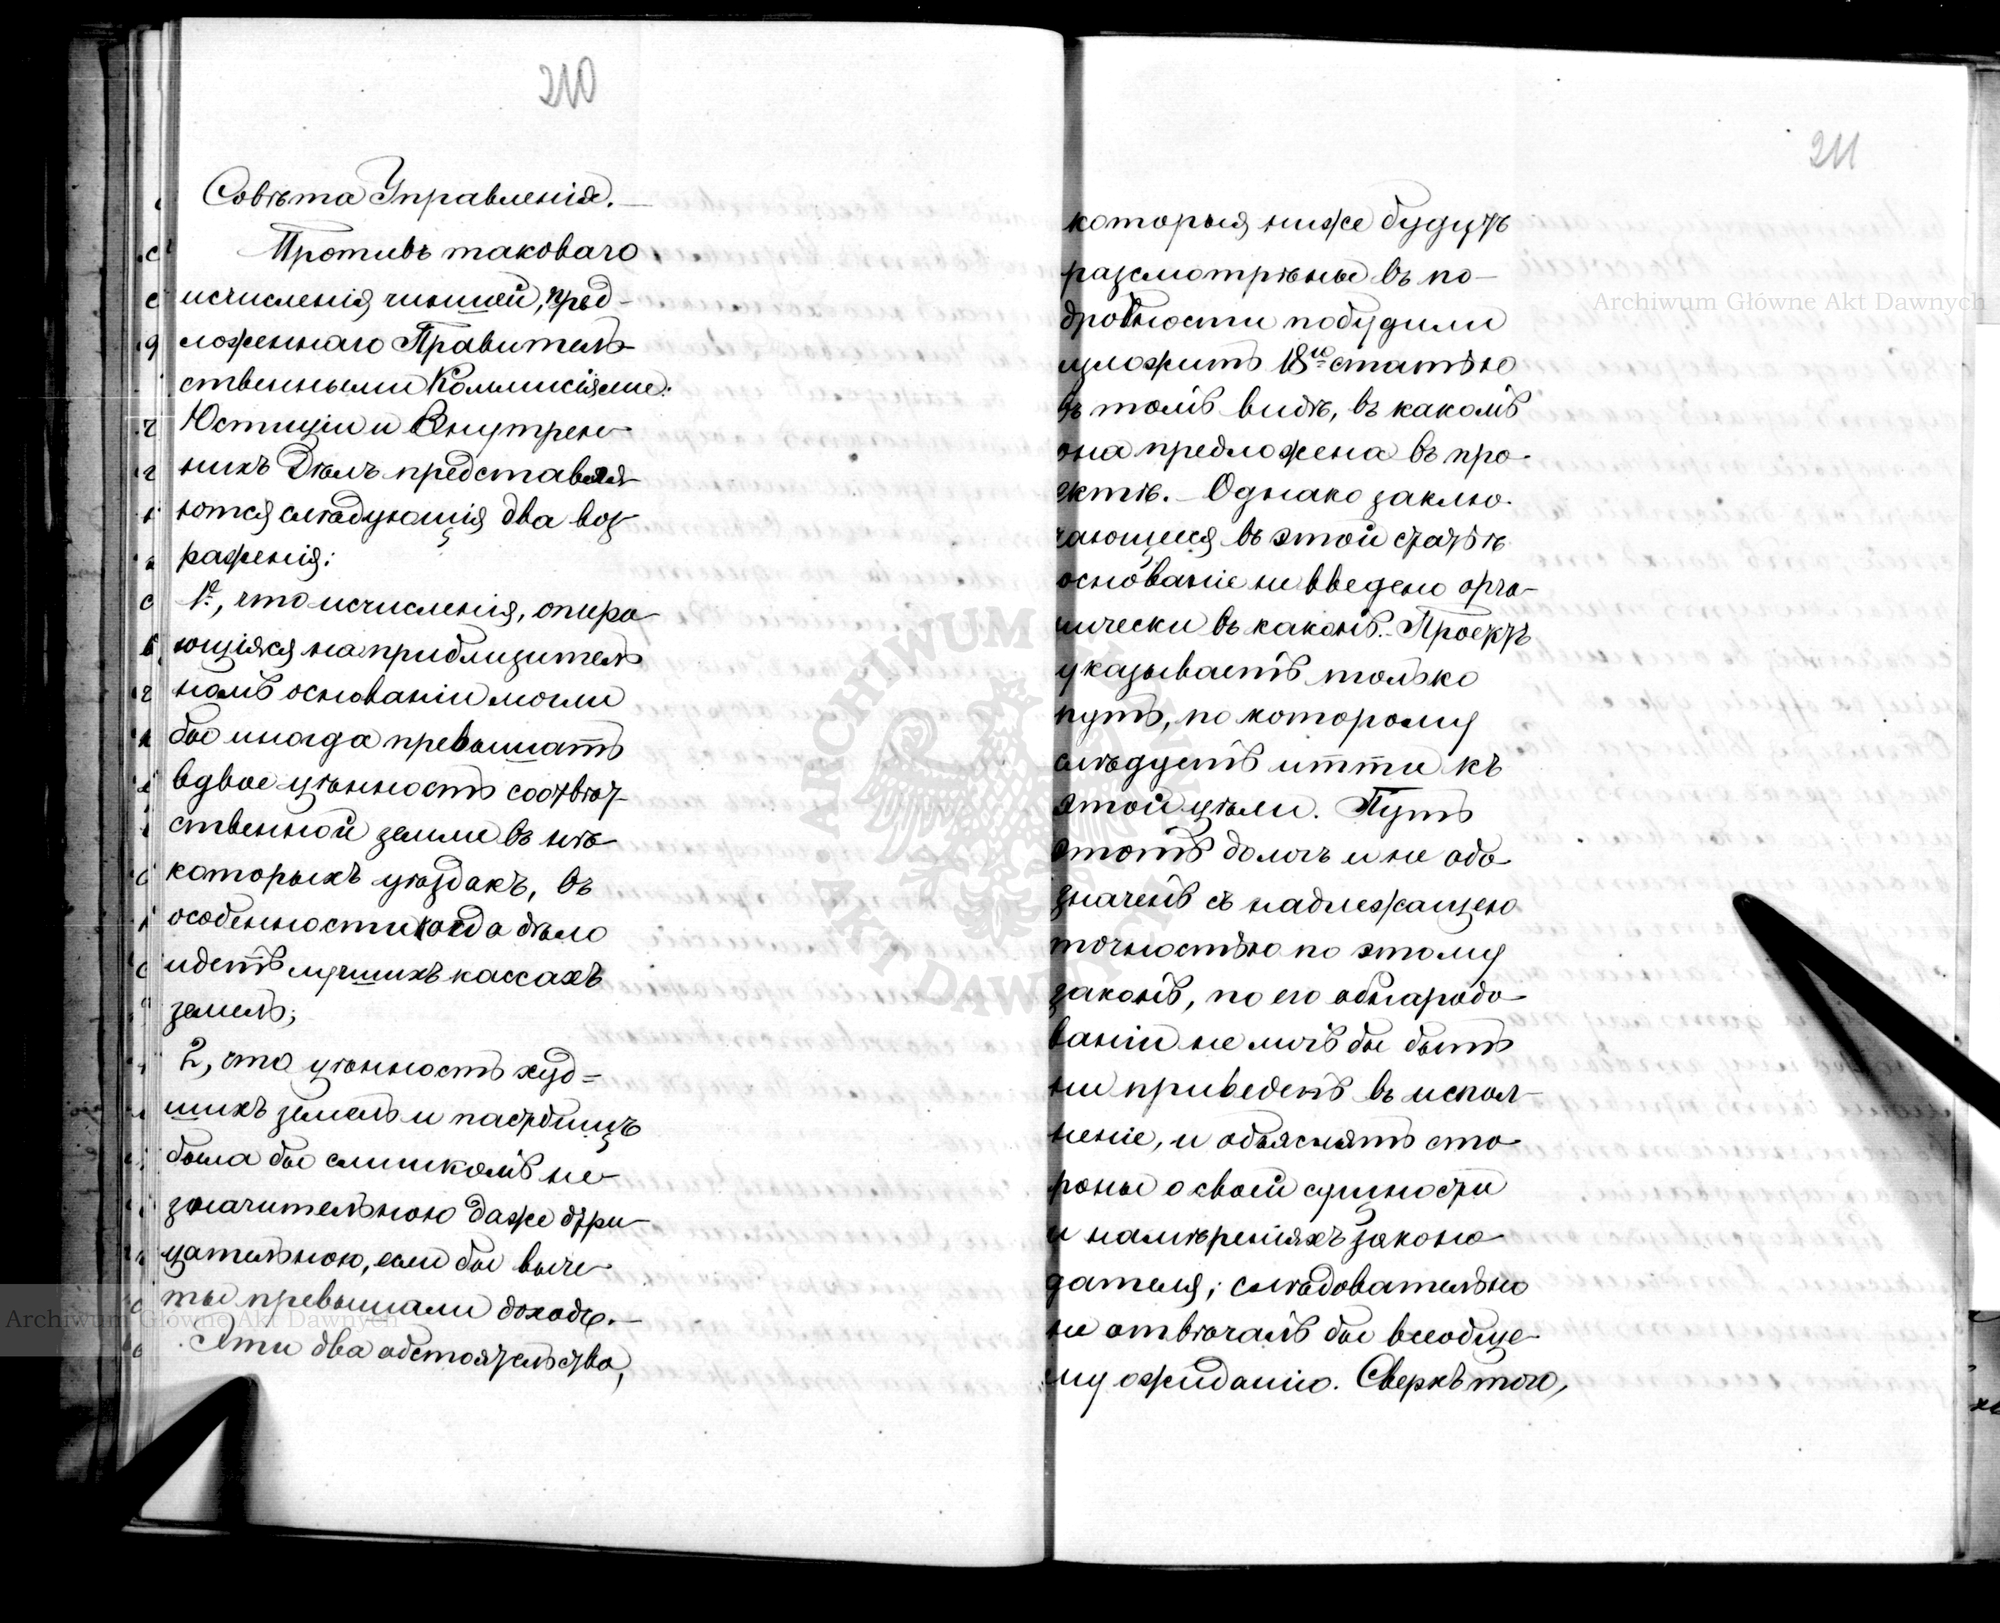 210
Совѣта Управленія.—
Противъ таковаго
исчисленія чиншей, пред-
ложеннаго Правитель-
ственными Коммисіями:
Юстиціи и Внутрен-
нихъ Дѣлъ представля-
ются слѣдующія два воз-
раженія:
1е, что исчисленія, опира-
ющіяся на приблизитель-
номъ основаніи могли
бы иногда превышать
вдвое цѣнность соотвѣт-
ственной земли въ нѣ-
которыхъ уѣздахъ, въ
особенности когда дѣло
идетъ лучшихъ кассахъ
земель;
2, что цѣнность худ=
шихъ земель и пастбищъ
была бы слишкомъ не-
значительною даже отри-
цательною, если бы выче-
ты превышали доходы.—
Эти два обстоятельства,
211
которыя ниже будутъ
разсмотрѣны въ по-
дробности побудили
изложить 18ю статью
въ томъ видѣ, въ какомъ
она предложена въ про-
ектѣ.- Однако заклю-
чающееся въ этой статьѣ
основаніе не введено орга-
нически въ законъ.- Проектъ
указываетъ только
путь, по которому
слѣдуетъ итти къ
этой цѣли. Путь
этотъ дологъ и не обо-
значенъ съ надлежащею
точностью по этому
законъ, по его обнародо-
ваніи не могъ бы быть
ни приведенъ въ испол-
неніе, и объяснять сто-
роны о своей сущности
и намѣреніяхъ законо-
дателя; слѣдовательно
не отвѣчалъ бы всеобще-
му ожиданію. Сверхъ того,
Archiwum Główne Akt Dawnych
Archiwum Główne Akt Dawnych
ARCHIWUM
AKT DAWNYCH